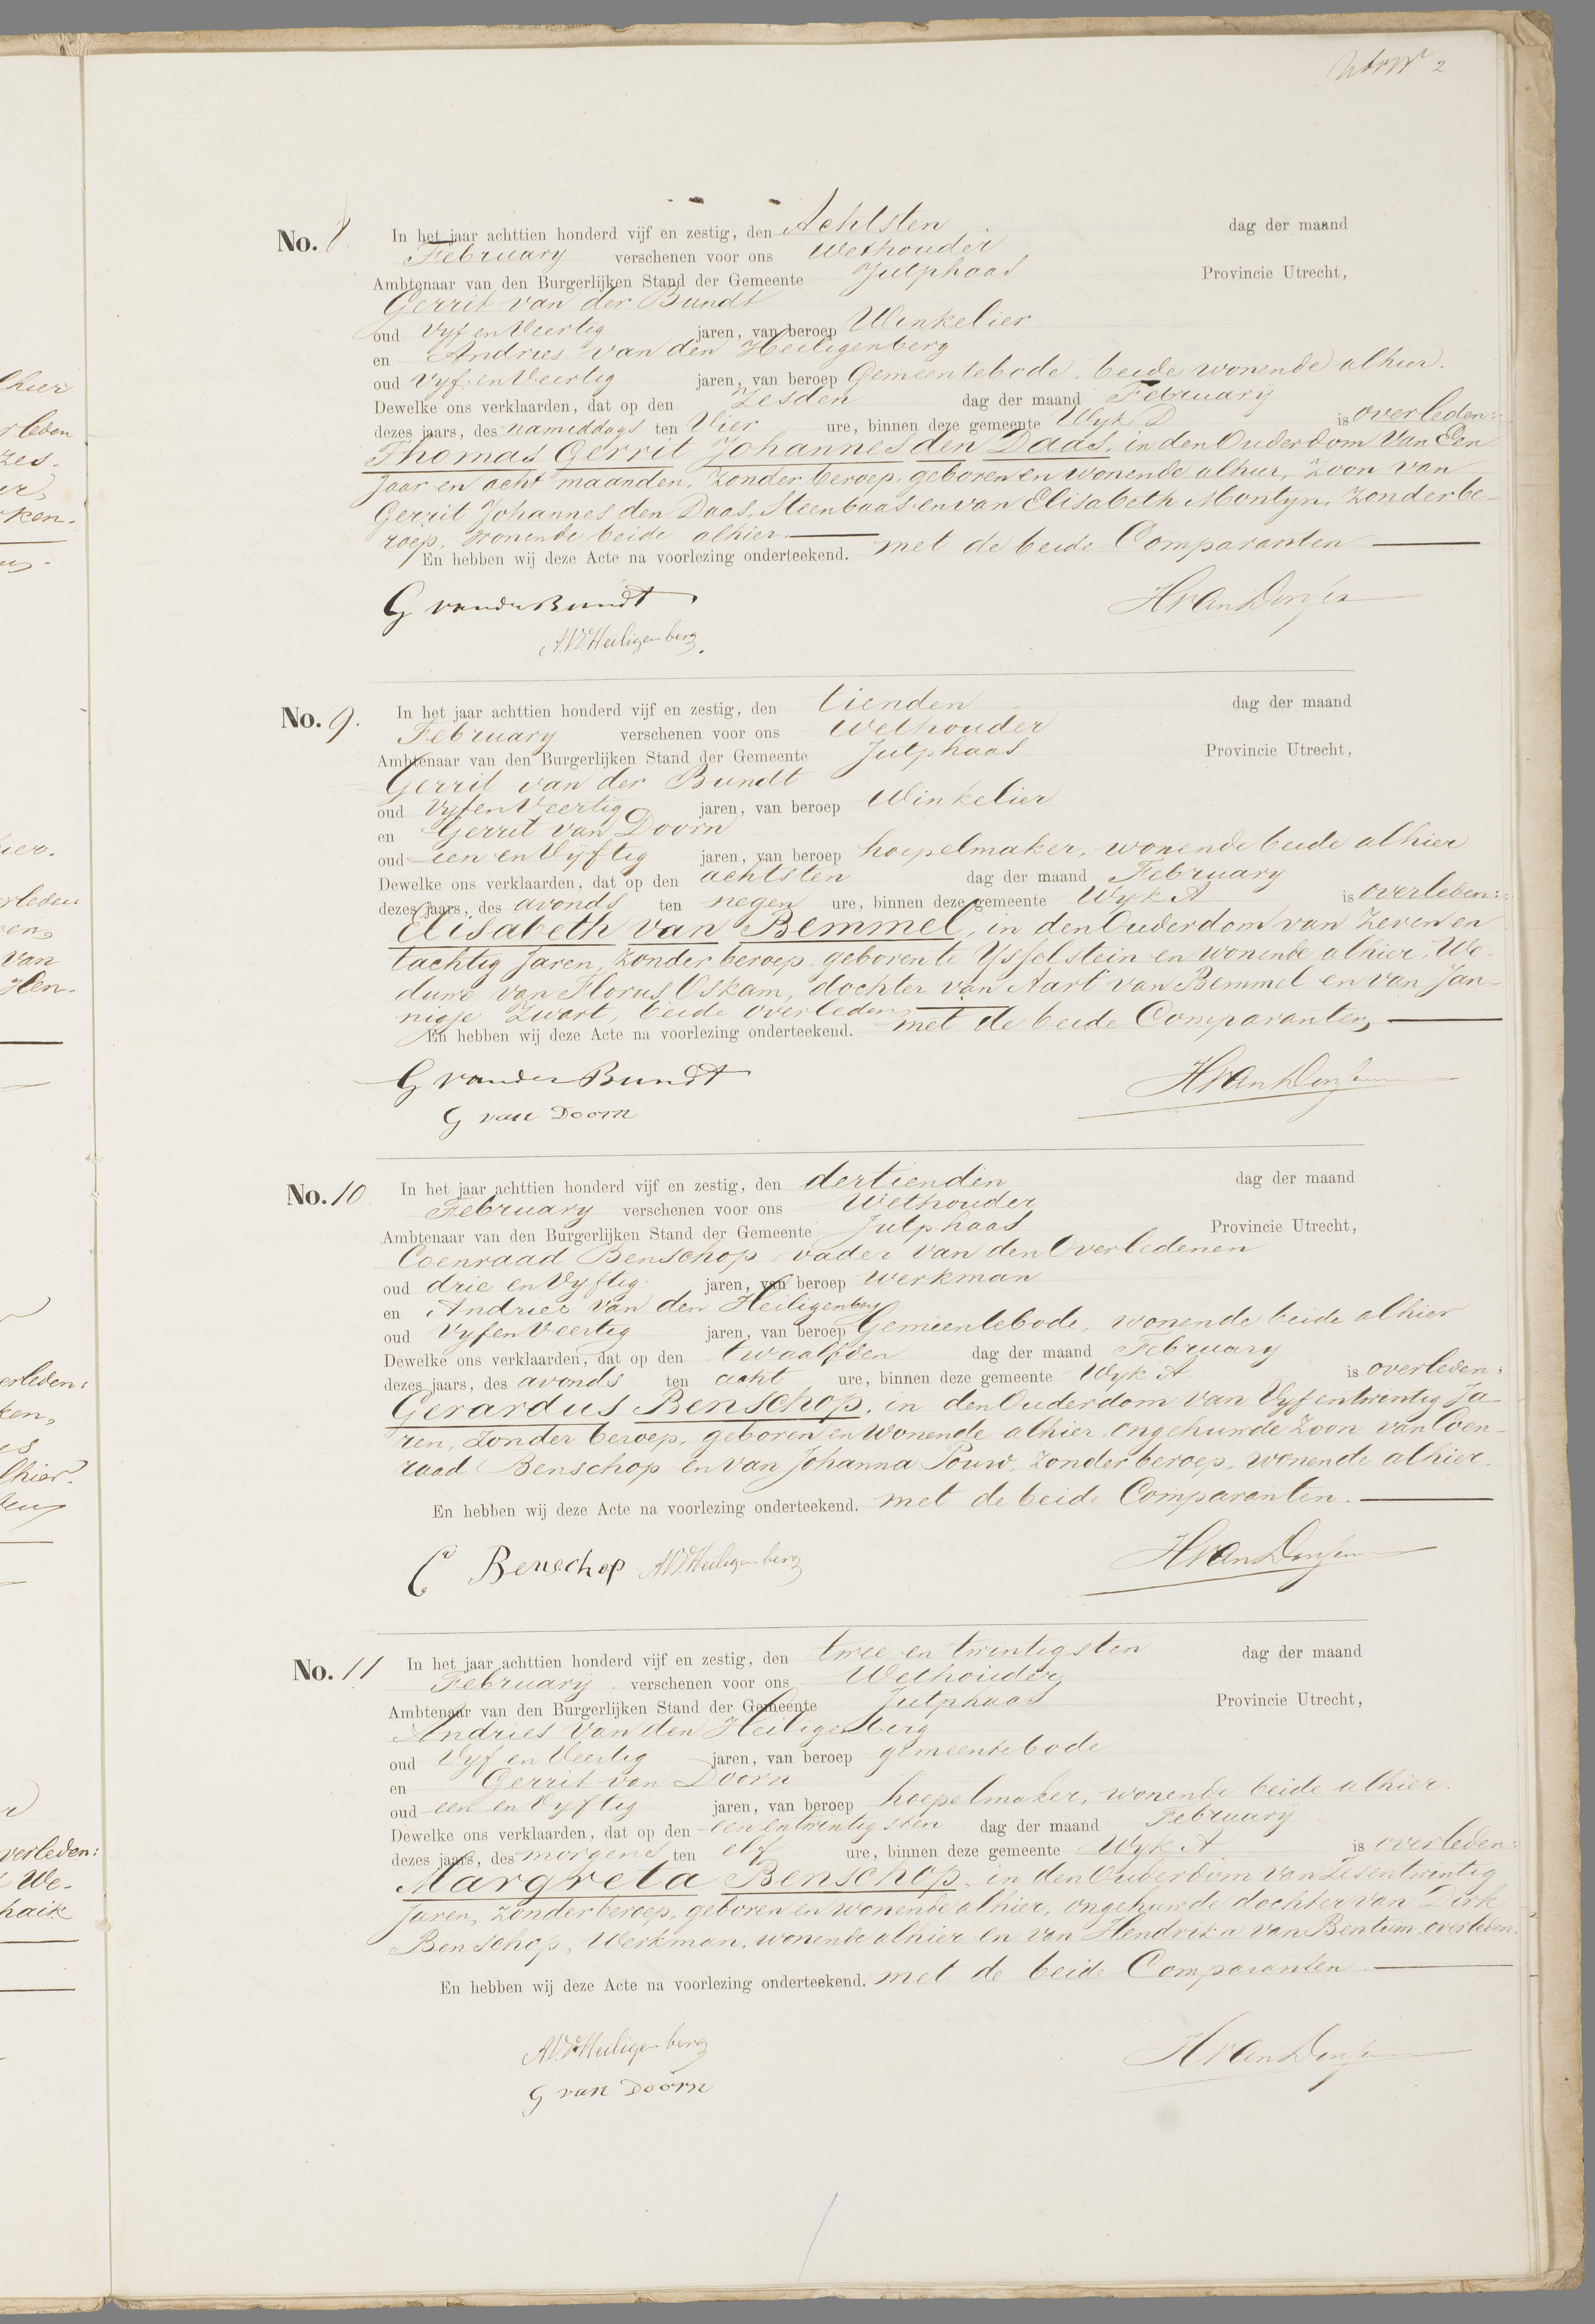 2
No. 8 In het jaar achttien honderd vijf en zestig, den Achtsten dag der maand
February verschenen voor ons Wethouder
Ambtenaar van den Burgerlijken Stand der Gemeente Jutphaas Provincie Utrecht,
Gerrit van der Bundt
oud Vyf en Veertig jaren, van beroep Winkelier
en Andries van den Heiligenberg
oud Vyf en Veertig jaren, van beroep Gemeentebode, beide wonende alhier.
Dewelke ons verklaarden, dat op den Zesden dag der maand February
dezes jaars, des nameddags ten Vier ure, binnen deze gemeente Wyk D is overleden:
Thomas Gerrit Johannes den Daas, in den Ouderdom Van Een
Jaar en acht maanden, Zonder beroep, geboren en wonende alhier, Zoon van
Gerrit Johannes den Daas, Steenbaas en van Elisabeth Montyn, Zonder be-
roep, Wonende beide alhier
En hebben wij deze Acte na voorlezing onderteekend. met de beide Comparanten
G van der Bundt
A.V.d.Heiligenberg.
No. 9. In het jaar achttien honderd vijf en zestig, den tienden dag der maand
February verschenen voor ons Wethouder
Ambtenaar van den Burgerlijken Stand der Gemeente Jutphaas Provincie Utrecht,
Gerrit van der Bundt
oud Vyf en Veertig jaren, van beroep Winkelier
en Gerrit van Doorn
oud een en Vyftig jaren, van beroep hoepelmaker, wonende beide alhier
Dewelke ons verklaarden, dat op den achtsten dag der maand February
dezes jaars, des avonds ten negen ure, binnen deze gemeente Wyk A is overleden:
Elisabeth van Bemmel, in den Ouderdom van Zeven en
tachtig Jaren, Zonder beroep, geboren te Ysselstein en wonende alhier, We-
duwe van Florus Oskam, dochter van Aart van Bemmel en van Jan-
nigje Zwart, beide overleden
En hebben wij deze Acte na voorlezing onderteekend. met de beide Comparanten,
G van der Bundt
G van Doorn
No. 10 In het jaar achttien honderd vijf en zestig, den dertienden dag der maand
February verschenen voor ons Wethouder
Ambtenaar van den Burgerlijken Stand der Gemeente Jutphaas Provincie Utrecht,
Coenraad Benschop vader van den Overledenen
oud drie en Vyftig jaren, van beroep Werkman
en Andries van den Heiligenberg
oud Vyf en Veertig jaren, van beroep Gemeentebode, wonende beide alhier
Dewelke ons verklaarden, dat op den twaalfden dag der maand February
dezes jaars, des avonds ten acht ure, binnen deze gemeente Wyk A is overleden:
Gerardus Benschop, in den Ouderdom van Vyfentwintig Ja-
ren, Zonder beroep, geboren en Wonende alhier, ongehuwde Zoon van Coen-
raad Benschop en van Johanna Pouw, Zonder beroep, wonende alhier.
En hebben wij deze Acte na voorlezing onderteekend. met de beide Comparanten.
C Benschop A.V.d.Heiligenberg
No. 11 In het jaar achttien honderd vijf en zestig, den twee en twintigsten dag der maand
February verschenen voor ons Wethouder
Ambtenaar van den Burgerlijken Stand der Gemeente Jutphaas Provincie Utrecht,
Andries van den Heiligenberg
oud Vyf en Veertig jaren, van beroep gemeentebode
en Gerrit van Doorn
oud een en Vyftig jaren, van beroep hoepelmaker, wonende beide alhier.
Dewelke ons verklaarden, dat op den een en twintigsten dag der maand February
dezes jaars, des morgens ten elf ure, binnen deze gemeente Wyk A is overleden:
Margreta Benschop, in den Ouderdom van Zesentwintig
Jaren, Zonder beroep, geboren en wonende alhier, ongehuwde dochter van Dirk
Benschop, Werkman, wonende alhier en van Hendrika van Bentum, overleden.
En hebben wij deze Acte na voorlezing onderteekend. met de beide Comparanten
A.V.d.Heiligenberg
G van Doorn